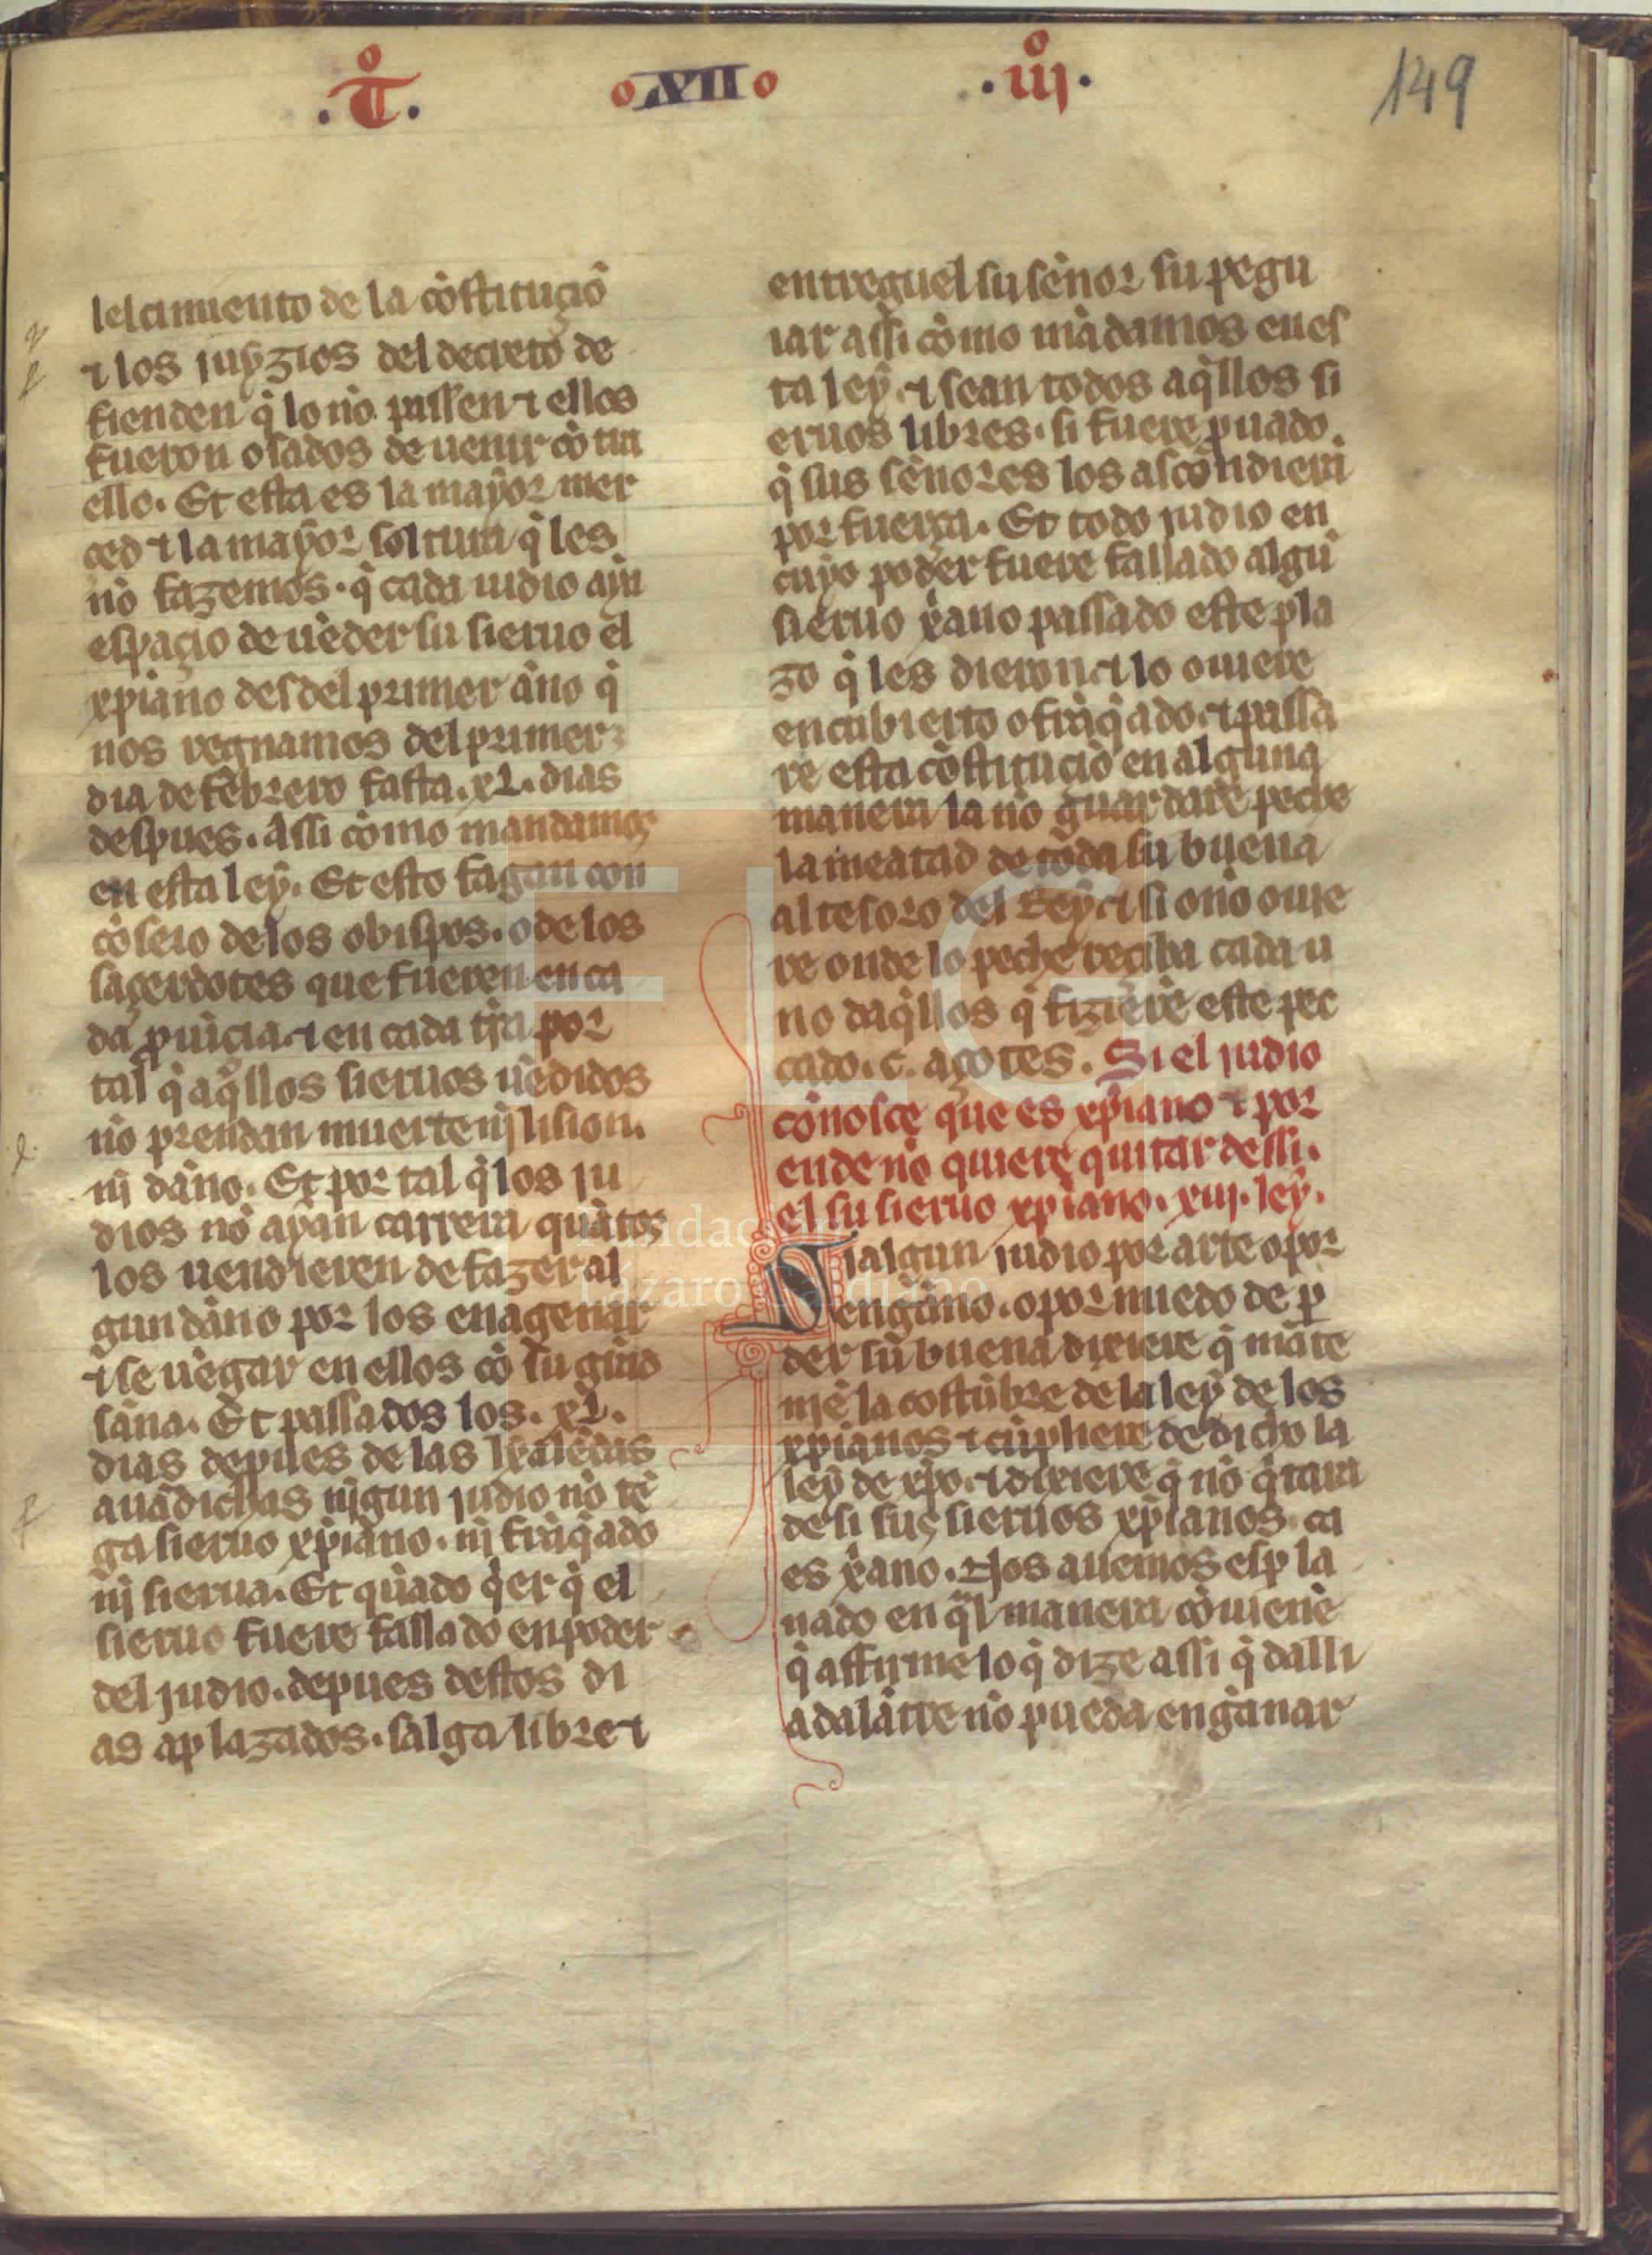 .T͛. oXIIo .iij.
149
lescimiento de la cõstituçiõ
⁊ los juyzios del decreto de
fienden q̃ lo nõ passen ⁊ ellos
fueron osados de uenir cõ tra
ello. Et esta es la mayor mer
çed ⁊ la mayor soltura q̃ les
nõ fazemos. q̃ cada iudio aya
espaçio de uẽder su sieruo el
xp̃iano desdel primer año q̃
nos regnamos del primer
dia de febrero fasta .xL. dias
despues. assi cõmo mandamos
en esta ley. Et esto fagan con
cõseio de los obispos. o de los
saçerdotes que fueren en ca
da ꝓuĩçia. ⁊ en cada tr̃a. por
tal q̃ aq̃llos sieruos uẽdidos
nõ prendan muerte nj̃ lision.
nj̃ daño. Et por tal q̃ los ju
dios nõ ayan carrera quãtos
los uendieren de fazer al
gun daño por los enagenar
⁊ se uẽgar en ellos cõ su grãd
saña. Et passados los .xL.
dias depues de las kalẽdas
auãdichas nj̃gun judio nõ tẽ
ga sieruo xp̃iano. nj̃ frãq̃ado
nj̃ sierua. Et quãdo q̃er q̃ el
sieruo fuere fallado en poder
del judio. depues destos di
as aplazados. salga libre ⁊
entreguel su señor su pegu
iar assi cõmo mãdamos en es
ta ley. ⁊ sean todos aq̃llos si
eruos libres. si fuere ꝓuado
q̃ sus señores los ascõndierõ
por fuerça. Et todo judio en
cuyo poder fuere fallado algũ
sieruo xãno passado este pla
zo q̃ les dieron. ⁊ lo ouiere
encubierto o frãq̃ado. ⁊ passa
re esta cõstituçiõ en alguna
manera la nõ guardare peche
la meatad de toda su buena
al tesoro del Rey. ⁊ si o nõ ouie
re onde lo peche reçiba cada u
no daq̃llos q̃ fiziere este pec
cado .c. açotes. Si el judio
cõnosçe que es xp̃iano ⁊ por
ende nõ quiere quitar dessi.
el su sieruo xp̃iano. xiij. ley.
Si algun judio por arte o por
engaño. o por miedo de ꝑ
der su buena dixiere q̃ mãte
mẽ la costũbre de la ley de los
xp̃ianos ⁊ cũpliere de dicho la
ley de xp̃o. ⁊ dixiere q̃ nõ q̃tara
de si sus sieruos xp̃ianos. ca
es xãno. Nos auemos espla
nado en q̃l manera cõuiene
q̃ affirme lo q̃ dize assi q̃ dalli
adalãtre nõ pueda engañar
FLG
Fundación
Lázaro Galdiano